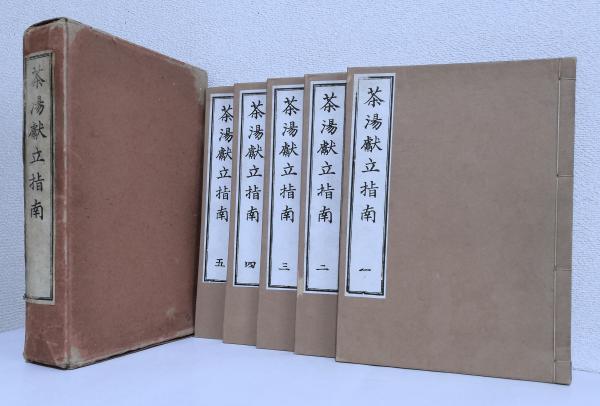 茶湯獻立指南
茶湯獻立指南
五
茶湯獻立指南
四
茶湯獻立指南
三
茶湯獻立指南
二
茶湯獻立指南
一